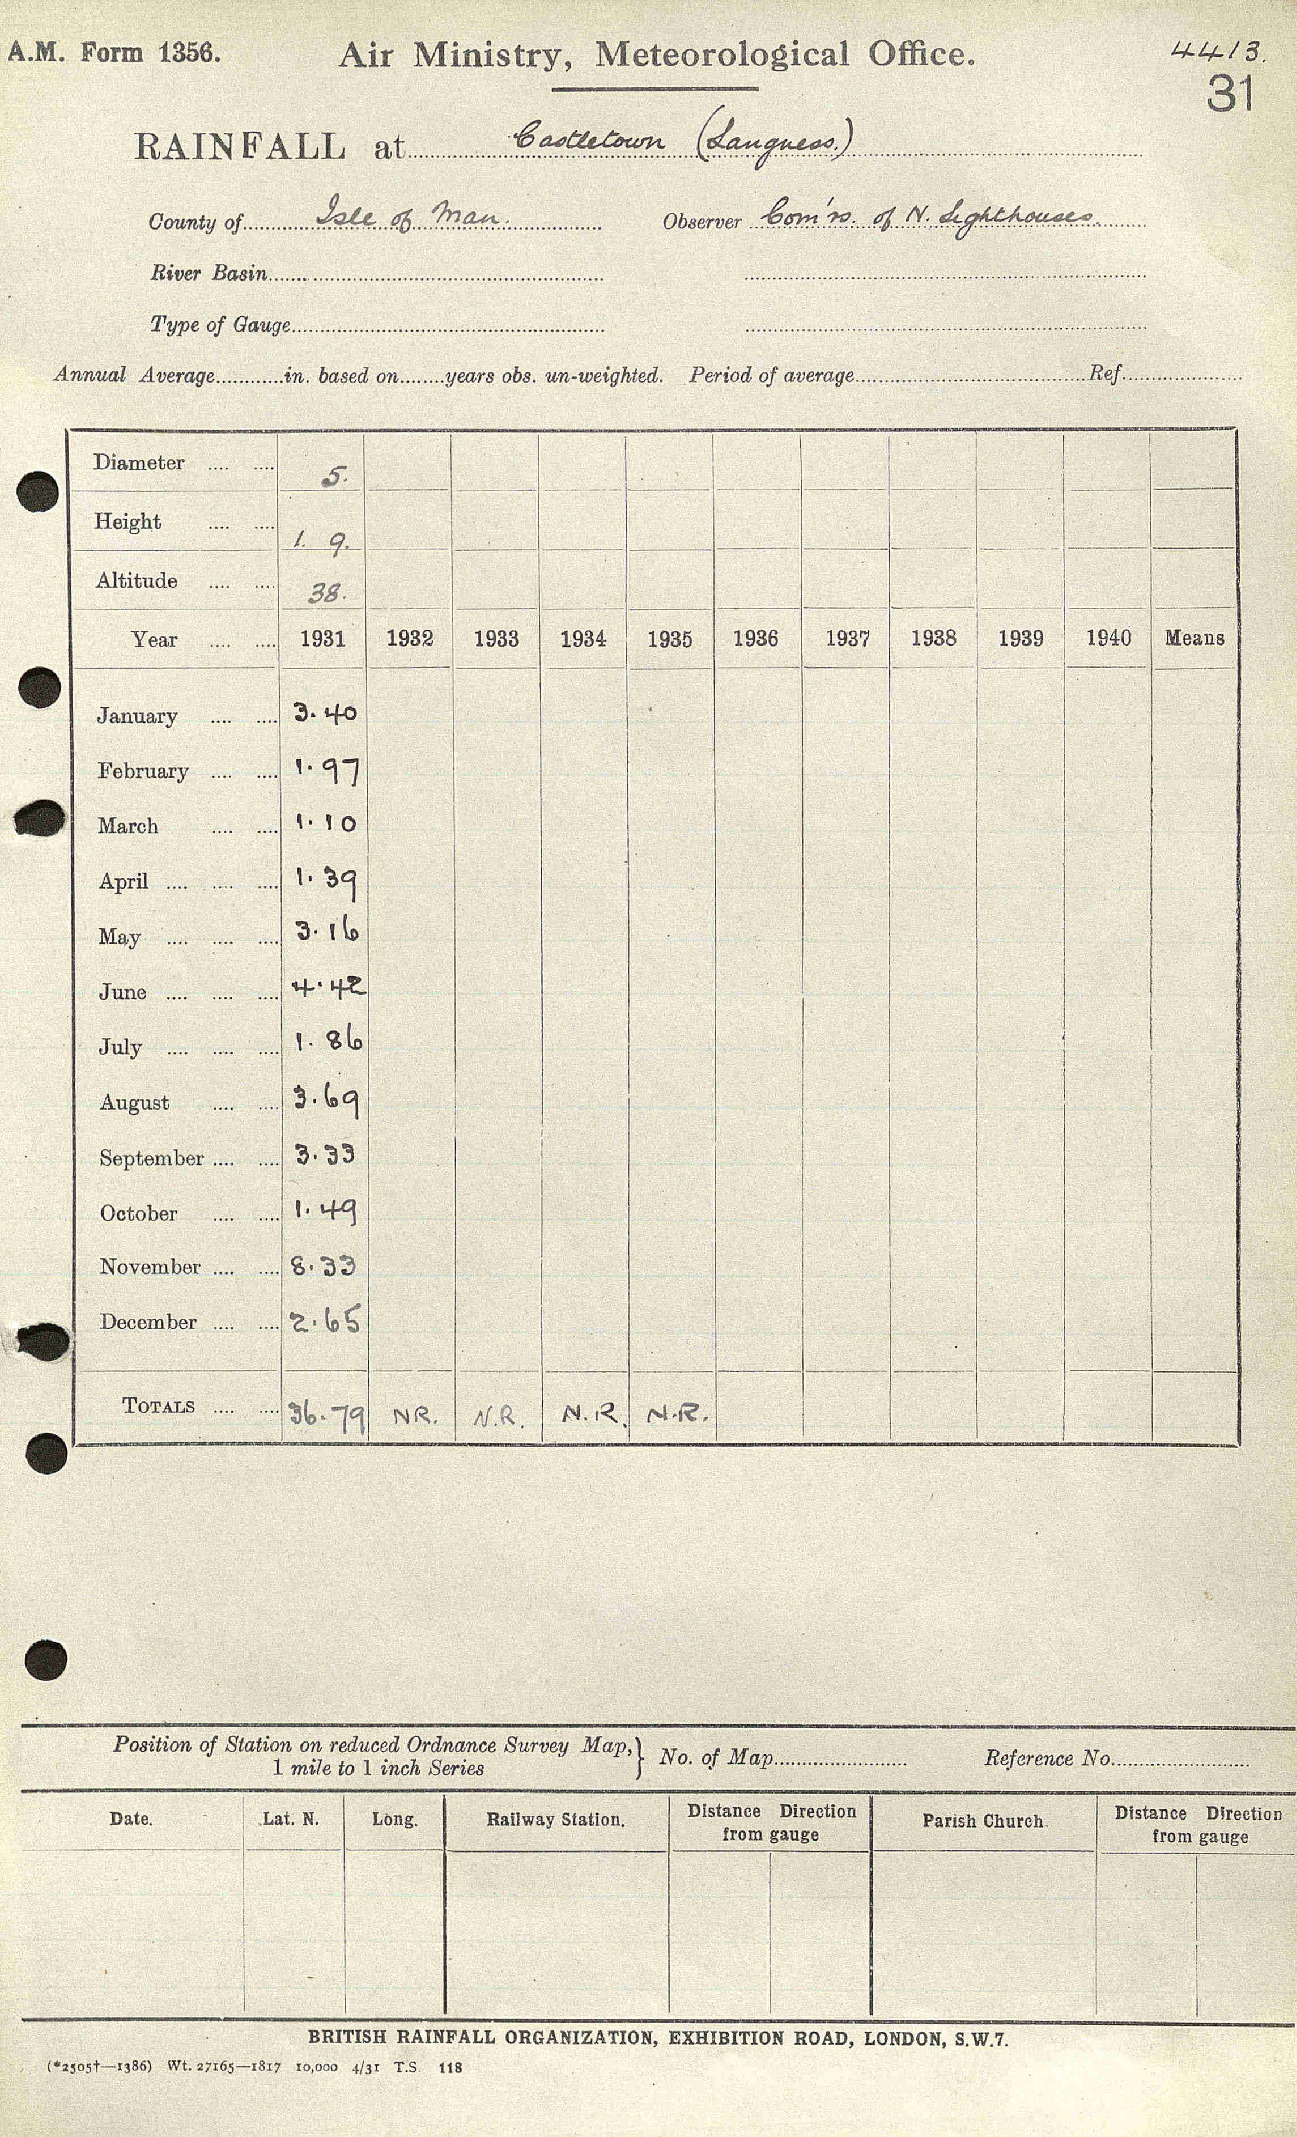 A.M. Form 1356. Air Ministry, Meteorological Office. 4413.
31
RAINFALL at Castletown (Langness.)
County of Isle of Man. Observer Com'rs. of N. Lighthouses.
River Basin
Type of Gauge
Annual Average in. based on years obs. un-weighted. Period of average Ref.
Diameter 5.
Height 1. 9.
Altitude 38.
Year 1931 1932 1933 1934 1935 1936 1937 1938 1939 1940 Means
January 3.40
February 1.97
March 1.10
April 1.39
May 3.16
June 4.42
July 1.86
August 3.69
September 3.33
October 1.49
November 8.33
December 2.65
TOTALS 36.79 NR. N.R. N.R. N.R.
Position of Station on reduced Ordnance Survey Map, } No. of Map Reference No.
1 mile to 1 inch Series
Date. Lat. N. Long. Railway Station. Distance Direction from gauge Parish Church. Distance Direction from gauge
BRITISH RAINFALL ORGANIZATION, EXHIBITION ROAD, LONDON, S.W.7.
(*2505†—1386) Wt. 27165—1817 10,000 4/31 T.S. 118